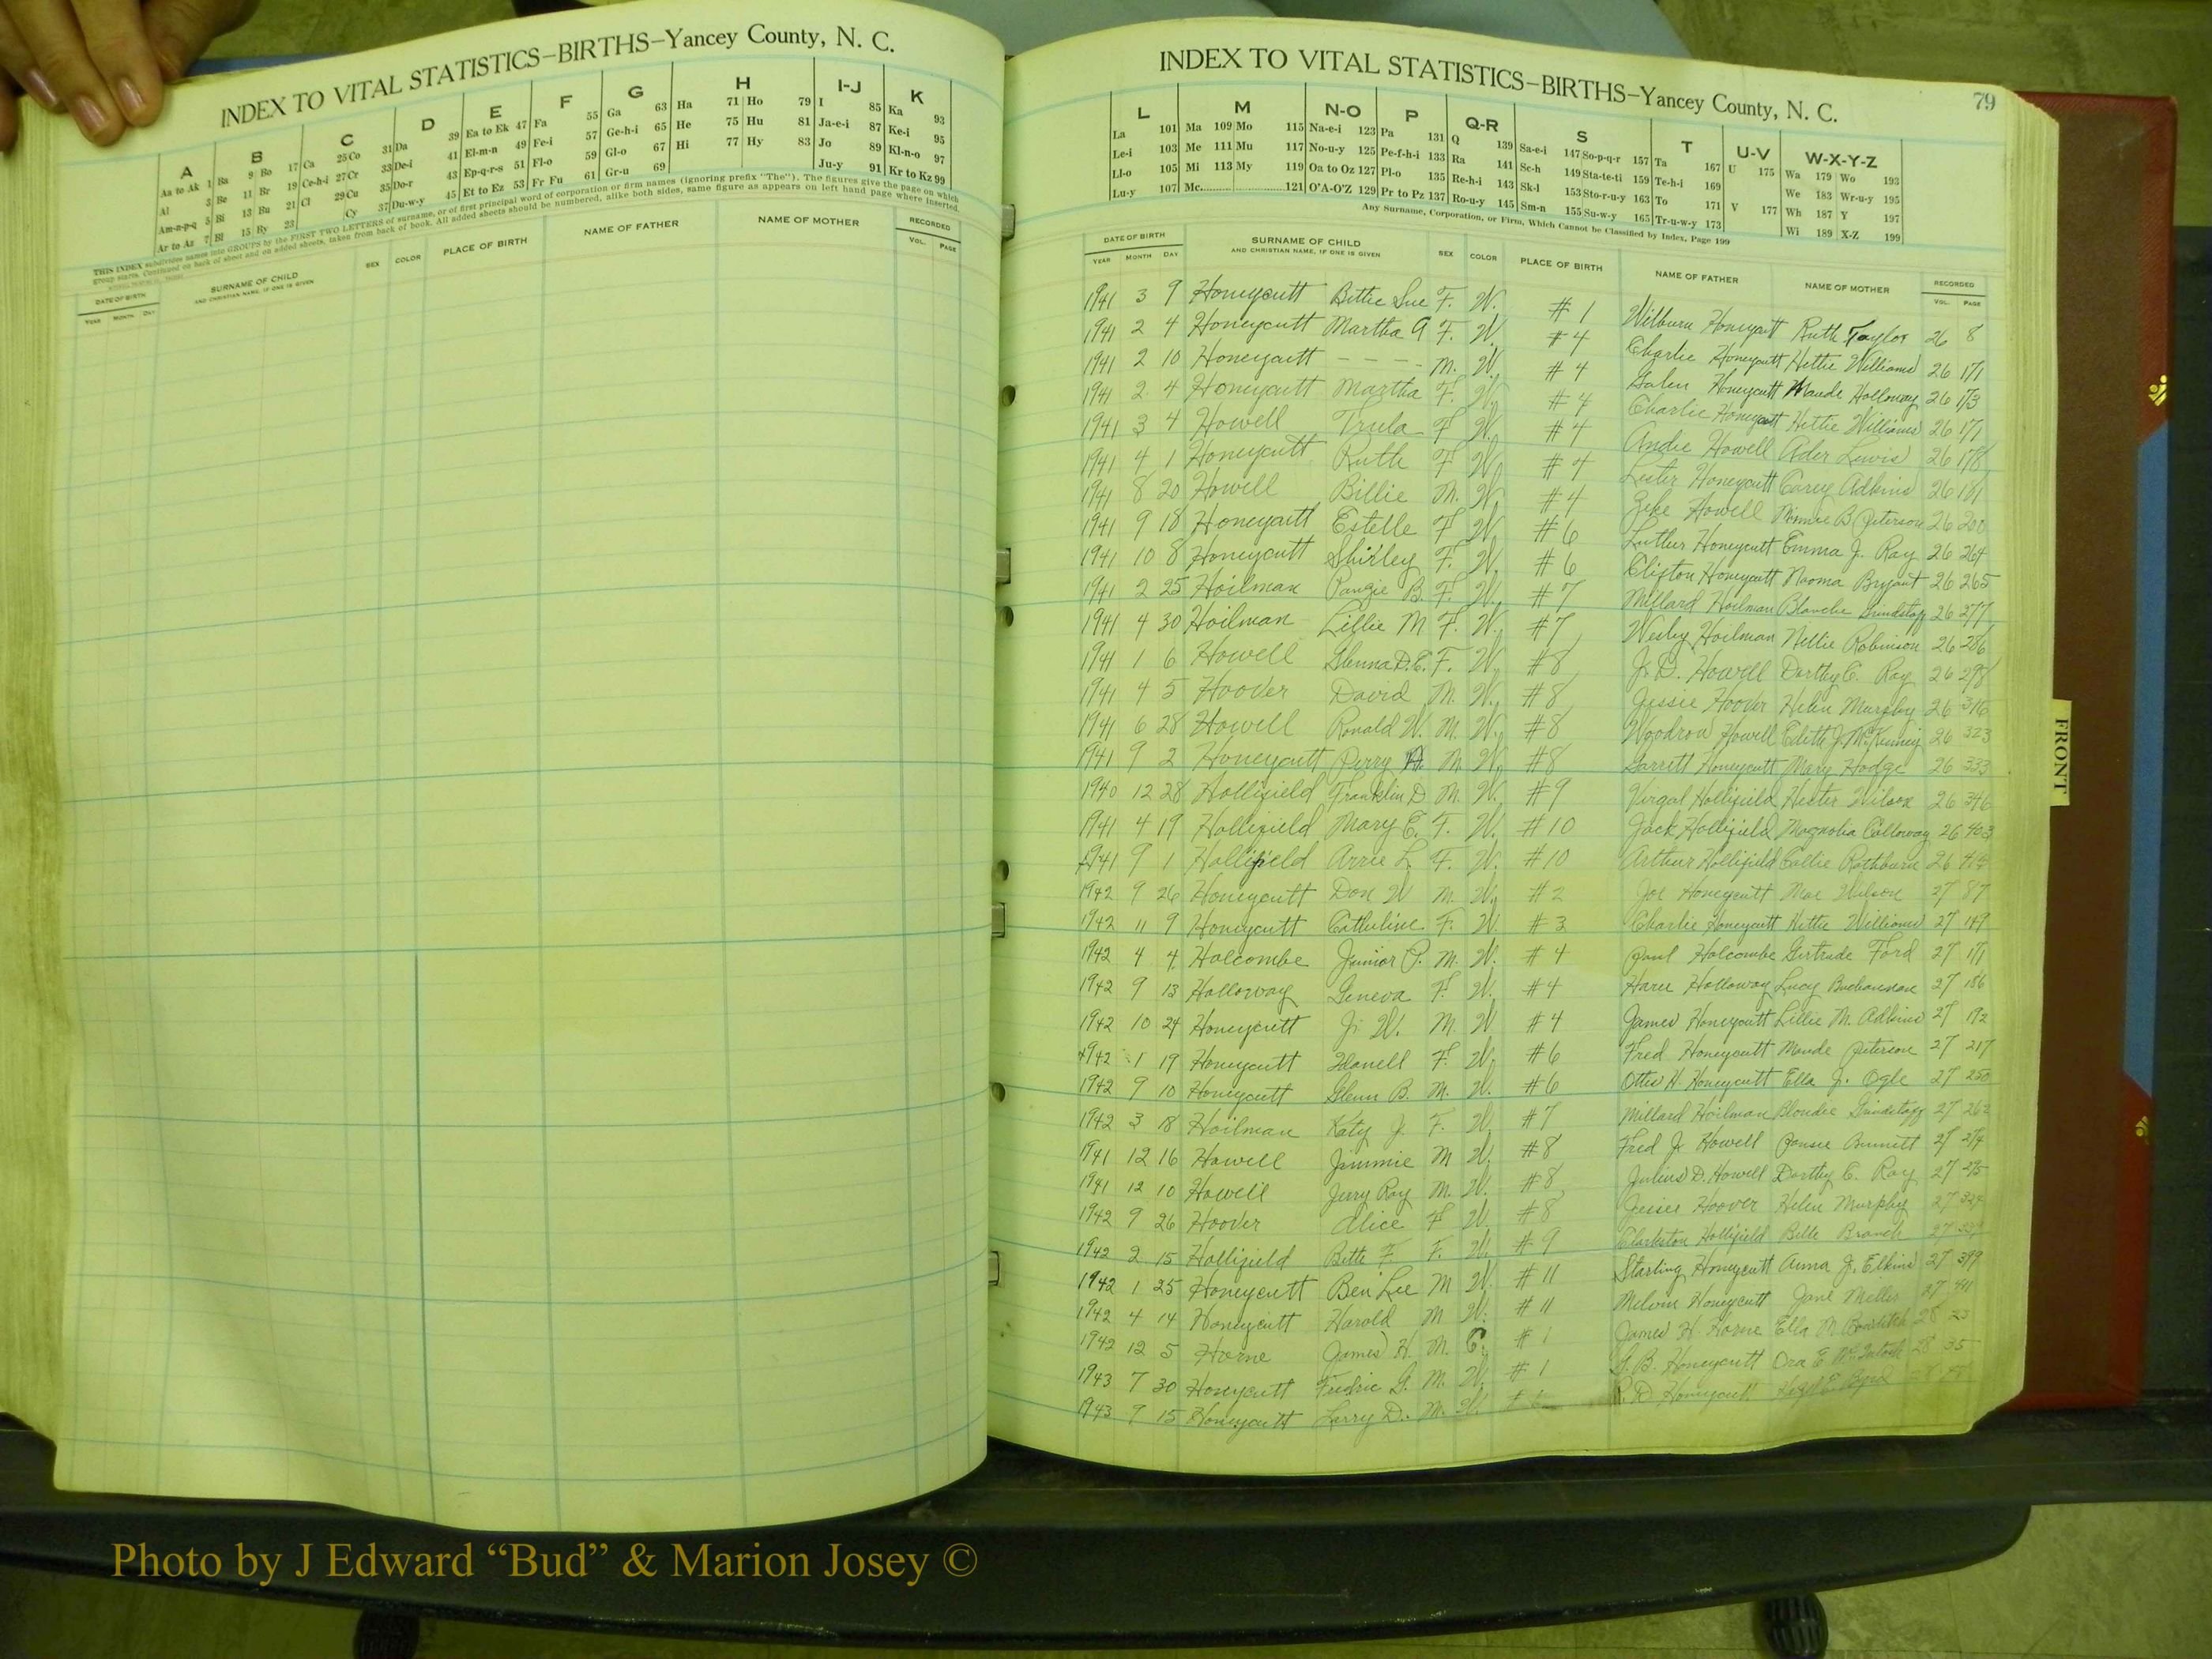 INDEX TO VITAL STATISTICS–BIRTHS–Yancey County, N. C.
A B C D E F G H I-J K
Aa to Ak 1 Ba 9 Bo 17 Ca 25 Co 31 Da 39 Ea to Ek 47 Fa 55 Ga 63 Ha 71 Ho 79 I 85 Ka 93
Al 3 Be 11 Br 19 Ce-h-i 27 Cr 33 De-i 41 El-m-n 49 Fe-i 57 Ge-h-i 65 He 75 Hu 81 Ja-e-i 87 Ke-i 95
Am-n-p-q 5 Bi 13 Bu 21 Cl 29 Cu 35 Do-r 43 Ep-q-r-s 51 Fl-o 59 Gl-o 67 Hi 77 Hy 83 Jo 89 Kl-n-o 97
Ar to Az 7 Bl 15 By 23 Cy 37 Du-w-y 45 Et to Ez 53 Fr Fu 61 Gr-u 69 Ju-y 91 Kr to Kz 99
THIS INDEX subdivides names into GROUPS by the FIRST TWO LETTERS of surname, or of first principal word of corporation or firm names (ignoring prefix "The"). The figures give the page on which
group starts. Continued on back of sheet and on added sheets, taken from back of book. All added sheets should be numbered, alike both sides, same figure as appears on left hand page where inserted.
DATE OF BIRTH SURNAME OF CHILD SEX COLOR PLACE OF BIRTH NAME OF FATHER NAME OF MOTHER RECORDED
YEAR MONTH DAY AND CHRISTIAN NAME, IF ONE IS GIVEN VOL. PAGE
INDEX TO VITAL STATISTICS–BIRTHS–Yancey County, N. C. 79
L M N-O P Q-R S T U-V W-X-Y-Z
La 101 Ma 109 Mo 115 Na-e-i 123 Pa 131 Q 139 Sa-e-i 147 So-p-q-r 157 Ta 167 U 175 Wa 179 Wo 193
Le-i 103 Me 111 Mu 117 No-u-y 125 Pe-f-h-i 133 Ra 141 Sc-h 149 Sta-te-ti 159 Te-h-i 169 We 183 Wr-u-y 195
Ll-o 105 Mi 113 My 119 Oa to Oz 127 Pl-o 135 Re-h-i 143 Sk-l 153 Sto-r-u-y 163 To 171 V 177 Wh 187 Y 197
Lu-y 107 Mc 121 O'A-O'Z 129 Pr to Pz 137 Ro-u-y 145 Sm-n 155 Su-w-y 165 Tr-u-w-y 173 Wi 189 X-Z 199
Any Surname, Corporation, or Firm, Which Cannot be Classified by Index, Page 199
DATE OF BIRTH SURNAME OF CHILD SEX COLOR PLACE OF BIRTH NAME OF FATHER NAME OF MOTHER RECORDED
YEAR MONTH DAY AND CHRISTIAN NAME, IF ONE IS GIVEN VOL. PAGE
1941 3 9 Honeycutt Bettie Sue F. W. #1 Wilburn Honeycutt Ruth Taylor 26 8
1941 2 4 Honeycutt Martha A F. W. #4 Charlie Honeycutt Hettie Williams 26 171
1941 2 10 Honeycutt - - - - M. W. #4 Galen Honeycutt Maude Holloway 26 173
1941 2 4 Honeycutt Martha F. W. #4 Charlie Honeycutt Hettie Williams 26 171
1941 3 4 Howell Trula F W. #4 Andie Howell Ader Lewis 26 178
1941 4 1 Honeycutt Ruth F W #4 Lester Honeycutt Corey Adkins 26 181
1941 8 20 Howell Billie M. W. #4 Zeke Howell Minnie B. Peterson 26 200
1941 9 18 Honeycutt Estelle F W. #6 Luther Honeycutt Emma J. Ray 26 264
1941 10 8 Honeycutt Shirley F. W. #6 Clifton Honeycutt Naoma Bryant 26 265
1941 2 25 Hoilman Pangie B. F. W. #7 Millard Hoilman Blanche Grindstaff 26 277
1941 4 30 Hoilman Lillie M F. W. #7 Wesley Hoilman Nellie Robinson 26 286
1941 1 6 Howell Glenna D.E. F. W. #8 J. D. Howell Dorthy C. Ray 26 298
1941 4 5 Hoover David M. W. #8 Jessie Hoover Helen Murphy 26 316
1941 6 28 Howell Ronald W. M. W. #8 Woodrow Howell Edith J. McKinney 26 323
1941 9 2 Honeycutt Perry A. M. W. #8 Garrett Honeycutt Mary Hodge 26 333
1940 12 28 Hollifield Franklin D. M. W. #9 Virgal Hollifield Hester Wilson 26 346
1941 4 19 Hollifield Mary E. F. W. #10 Jack Hollifield Magnolia Calloway 26 403
1941 9 1 Hollifield Arrie L. F. W. #10 Arthur Hollifield Callie Rathburn 26
1942 9 26 Honeycutt Don W M. W. #2 Joe Honeycutt Mae Wilson 27 87
1942 11 9 Honeycutt Catheline F. W. #3 Charlie Honeycutt Hettie Williams 27 149
1942 4 4 Holcombe Junior P. M. W. #4 Paul Holcombe Gertrude Ford 27 171
1942 9 13 Holloway Geneva F. W. #4 Holloway Lucy Buchannan 27 186
1942 10 24 Honeycutt Jr. W. M. W #4 James Honeycutt Lillie M. Adkins 27 192
1942 1 19 Honeycutt F. W. #6 Fred Honeycutt Maude Peterson 27 217
1942 9 10 Honeycutt Glenn B. M. W. #6 Otter H. Honeycutt Ella J. Ogle 27 250
1942 3 18 Hoilman Katy J. F. W #7 Millard Hoilman Blondie Grindstaff 27 262
1941 12 16 Howell Jimmie M W. #8 Fred Jr Howell Ponsie Burnett 27 274
1941 12 10 Howell Jerry Ray M. W. #8 Julius D. Howell Dorthy C. Ray 27 295
1942 9 26 Hoover Alice F W. #8 Jessie Hoover Helen Murphy 27 324
1942 2 15 Hollifield Bette F. F. W. #9 Clarkston Hollifield Belle Branch 27
1942 1 25 Honeycutt Ben Lee M W. #11 Starling Honeycutt Anna J. Elkins 27 399
1942 4 14 Honeycutt Harold M W. #11 Melvin Honeycutt Jane Miller 27 411
1942 12 5 Horne James H. M. C. #1 James H. Horne Ella M. 28 23
1943 7 30 Honeycutt Fredric G. M. W. #1 Honeycutt Ora E. McIntosh 28 35
1943 9 15 Honeycutt Larry D. M. W. R. D. Honeycutt Byrd
FRONT
Photo by J Edward “Bud” & Marion Josey ©